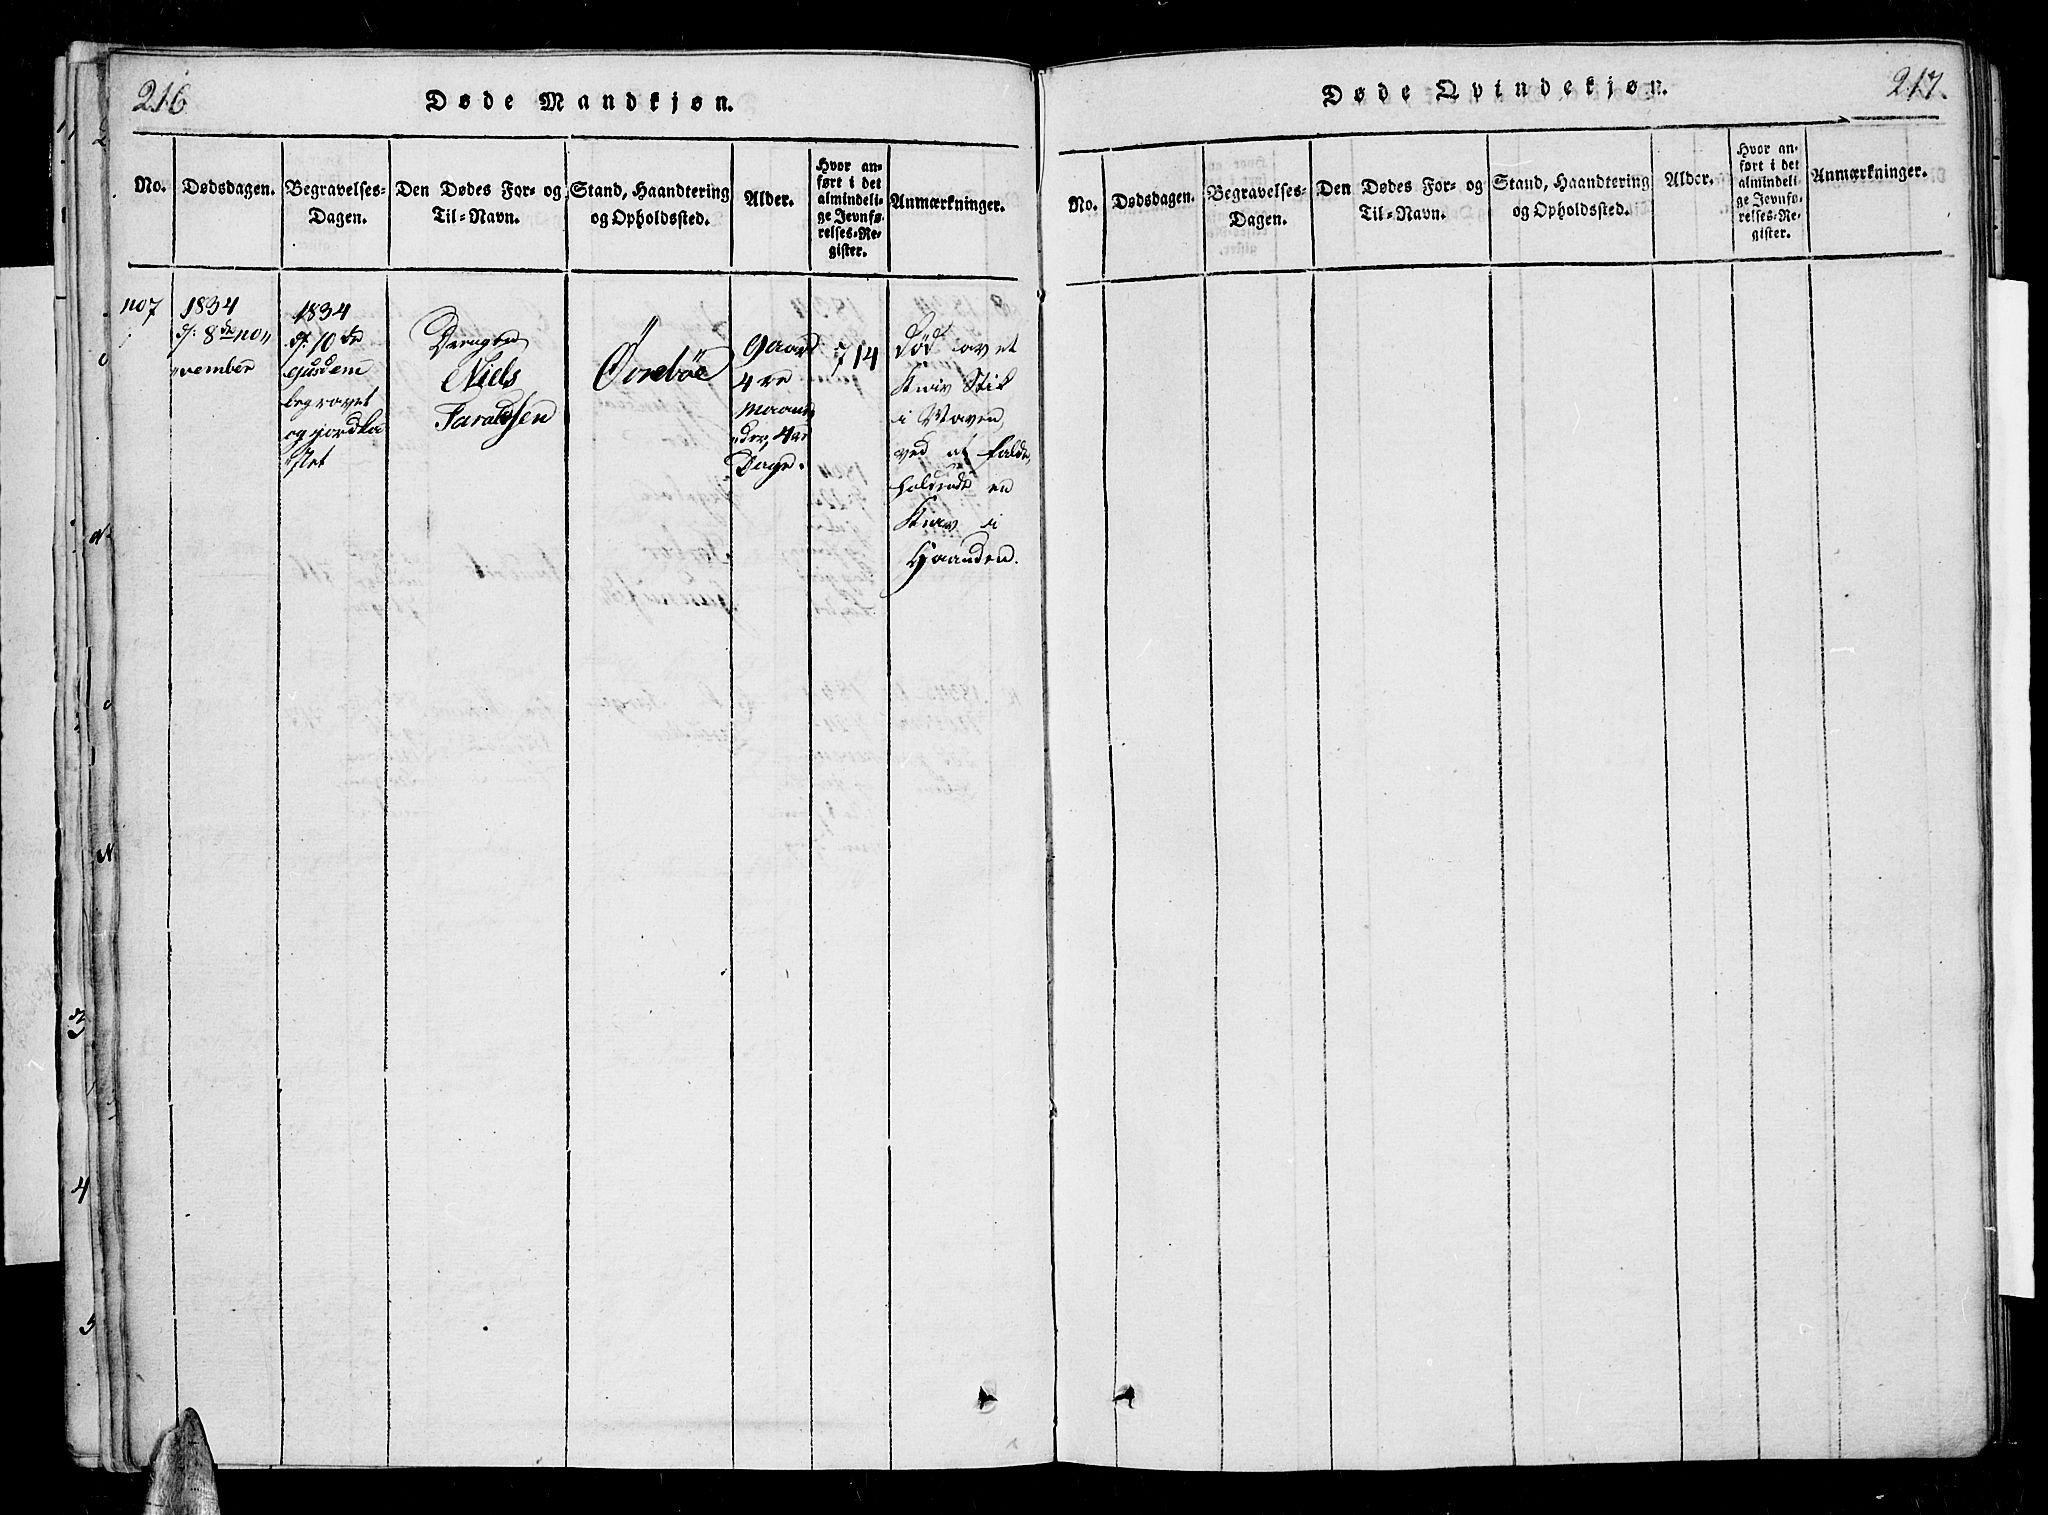 216
Døde Mandkjøn.
No.
Dødsdagen.
Begravelses-
Dagen.
Den Dødes For- og
Til-Navn.
Stand, Haandtering
og Opholdssted.
Alder.
Hvor an-
ført i det
almindeli-
ge Jevnfø-
relses-Re-
gister.
Anmærkninger.
no 7
1834
d. 8de no„
„vember
1834
d. 10 de
ejusdem
begravet
og jordka
„stet
Drengen
Niels
Taraldsen
Öørebøe
9 aar
4re
maane
„der, 4re
Dage.
714
Død av et
Kniv Stik
i Maven
ved at falde,
en
Kniv i
Haanden.
217.
Døde Qvindekjøn.
No.
Dødsdagen.
Begravelses-
Dagen.
Den Dødes For- og
Til-Navn.
Stand, Haandtering
og Opholdssted.
Alder.
Hvor an-
ført i det
almindeli-
ge Jevnfø-
relses-Re-
gister.
Anmærkninger.